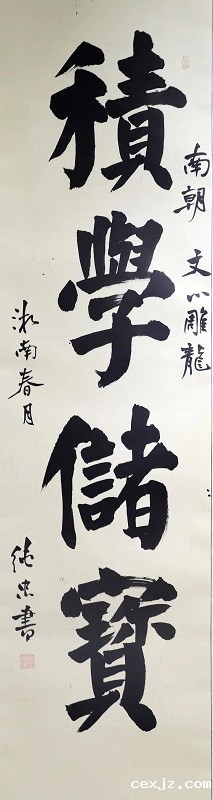 南朝 文心雕龍
積學儲寶
南春月
書
cexjz.com